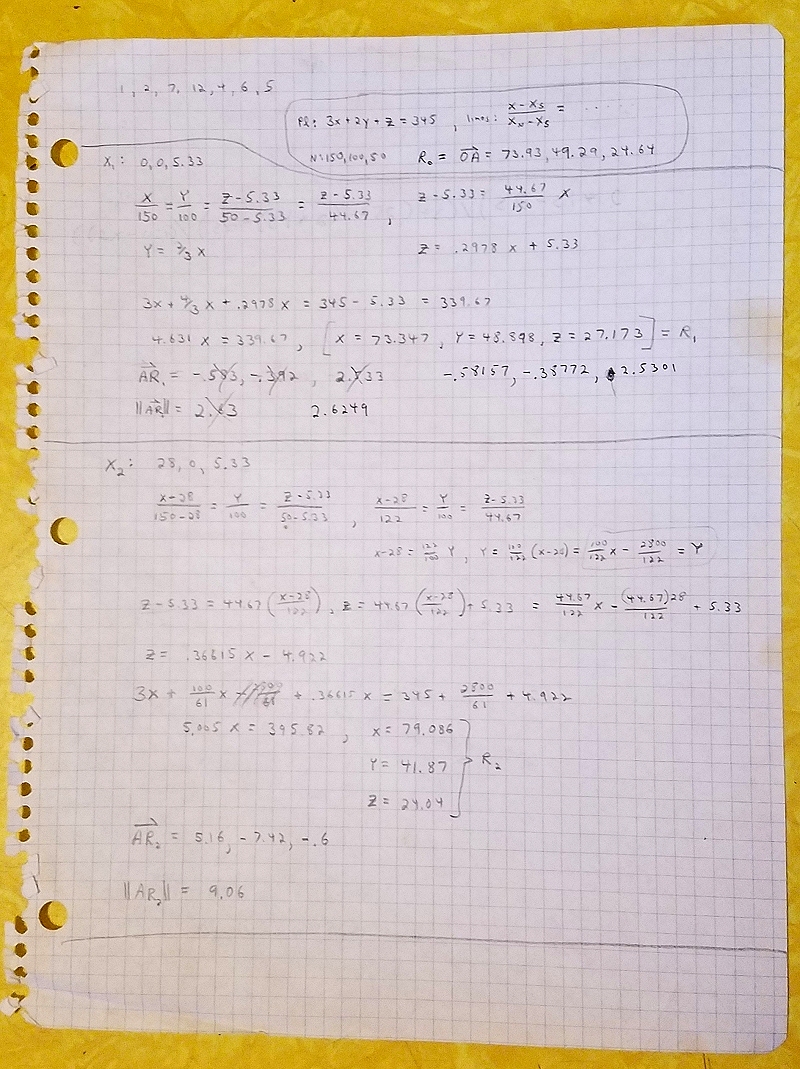 1, 2, 7, 12, 4, 6, 5
Pl: 3x + 2y + z = 345 , lines: (x - x_s)/(x_N - x_s) = . . . . .
N: 150, 100, 50 R₀ = OA→ = 73.93, 49.29, 24.64
X₁: 0, 0, 5.33
x/150 = Y/100 = (z - 5.33)/(50 - 5.33) = (z - 5.33)/44.67 , z - 5.33 = 44.67/150 x
Y = 2/3 x z = .2978 x + 5.33
3x + 4/3 x + .2978 x = 345 - 5.33 = 339.67
4.631 x = 339.67 , [ x = 73.347 , Y = 48.898, z = 27.173 ] = R₁
AR₁→ = -.583, -.392 , 2.533 -.58157, -.38772, 2.5301
||AR₁→|| = 2.63 2.6249
X₂: 28, 0, 5.33
(x - 28)/(150 - 28) = Y/100 = (z - 5.33)/(50 - 5.33) , (x - 28)/122 = Y/100 = (z - 5.33)/44.67
x - 28 = 122/100 Y , Y = 100/122 (x - 28) = 100/122 x - 2800/122 = Y
z - 5.33 = 44.67 ((x - 28)/122) , z = 44.67 ((x - 28)/122) + 5.33 = 44.67/122 x - (44.67)28/122 + 5.33
z = .36615 x - 4.922
3x + 100/61 x - 2800/61 + .36615 x = 345 + 2800/61 + 4.922
5.005 x = 395.82 , x = 79.086
Y = 41.87 } R₂
z = 24.04
AR₂→ = 5.16, - 7.42, -.6
||AR₂|| = 9.06